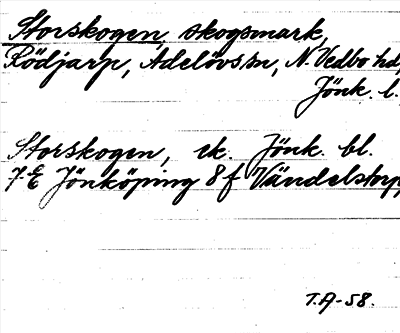 Storskogen, skogsmark,
Rödjarp, Adelövs sn, N. Vedbo hd,
Jönk. l.
Storskogen, ek. Jönk. bl.
7E Jönköping 8f Vändelstorp
T.A-58.